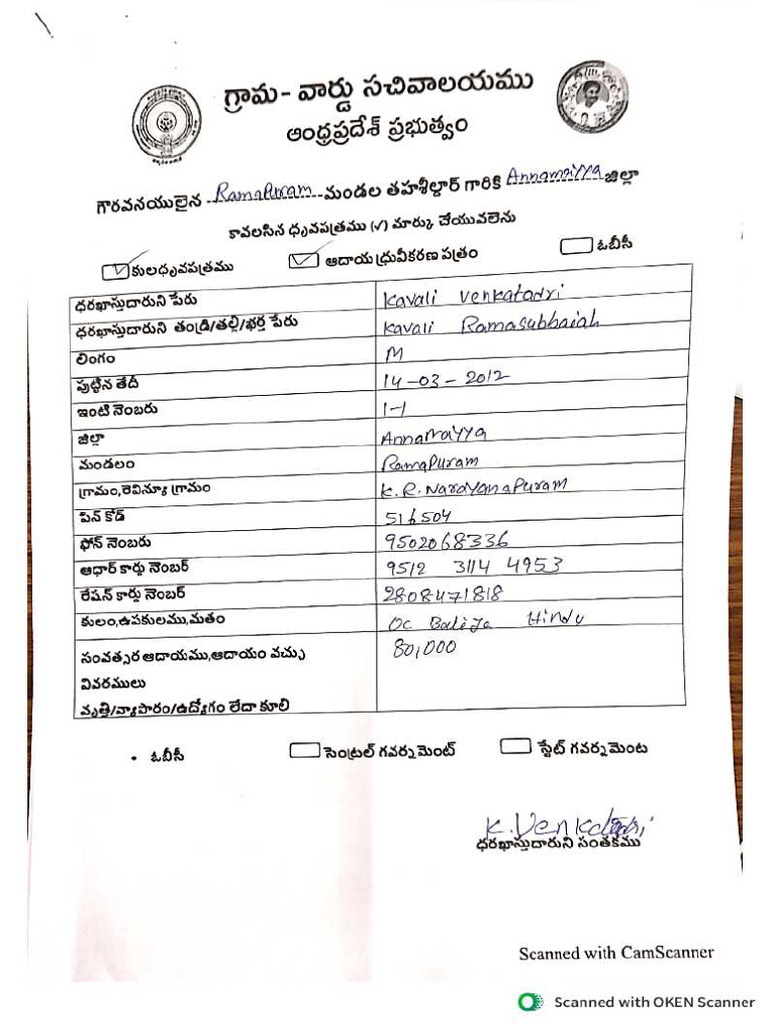 గ్రామ- వార్డు సచివాలయము
ఆంధ్రప్రదేశ్ ప్రభుత్వం
గౌరవనయులైన Ramapuram మండల తహశీల్దార్ గారికి Annamaiyya జిల్లా
కావలసిన ధృవపత్రము (✓) మార్కు చేయువలెను
కులధృవపత్రము ఆదాయ ధ్రువీకరణ పత్రం ఓబీసీ
ధరఖాస్తుదారుని పేరు Kavali Venkatadri
ధరఖాస్తుదారుని తండ్రి/తల్లి/భర్త పేరు Kavali Ramasubbaiah
లింగం M
పుట్టిన తేదీ 14-03-2012
ఇంటి నెంబరు 1-1
జిల్లా Annamayya
మండలం Ramapuram
గ్రామం,రెవిన్యూ గ్రామం K.R.Narayanapuram
పిన్ కోడ్ 516504
ఫోన్ నెంబరు 9502068336
ఆధార్ కార్డు నెంబర్ 9512 3114 4953
రేషన్ కార్డు నెంబర్ 2808471818
కులం,ఉపకులము,మతం OC Balija Hindu
సంవత్సర ఆదాయము,ఆదాయం వచ్చు 80,000
వివరములు
వృత్తి/వ్యాపారం/ఉద్యోగం లేదా కూలి
• ఓబీసీ సెంట్రల్ గవర్నమెంట్ స్టేట్ గవర్నమెంట
K.Venkatadri
ధరఖాస్తుదారుని సంతకము
Scanned with CamScanner
Scanned with OKEN Scanner